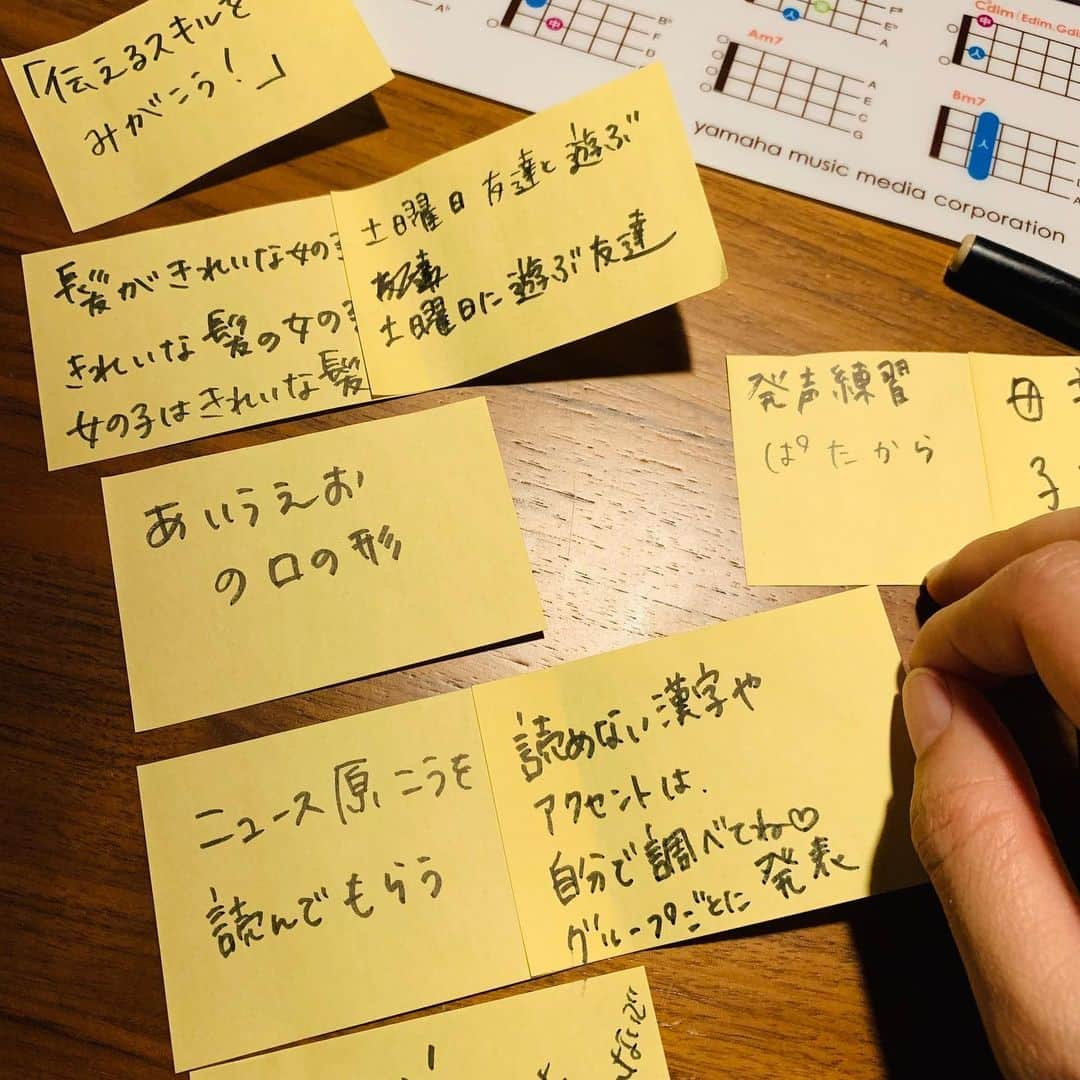 「伝えるスキルを
みがこう！」
髪がきれいな女の
きれいな髪の女の
女の子はきれいな髪
土曜日 友達と遊ぶ
土曜日に遊ぶ友達
あいうえお
の口の形
発声練習
ぱたから
母
子
ニュース原こうを
読んでもらう
読めない漢字や
アクセントは、
自分で調べてね♡
グループごとに発表
ないで
Am7
A
E
C
G
Bm7
C#dim(Edim,Gdi
B♭
F
D
A♭
E
A
yamaha music media corporation